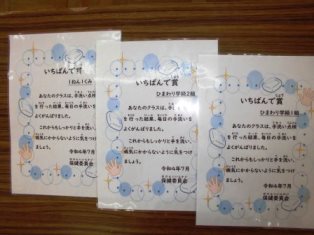 いちばんで賞
1ねん1くみ
あなたのクラスは、手洗い点検
を行った結果、毎日の手洗いを
よくがんばりました。
これからもしっかりと手を洗い、
病気にかからないように気をつけ
ましょう。
令和4年7月
保健委員会
いちばんで賞
ひまわり学級2組
あなたのクラスは、手洗い点検
を行った結果、毎日の手洗いを
よくがんばりました。
これからもしっかりと手を洗い、
病気にかからないように気をつけ
ましょう。
令和4年7月
保健委員会
いちばんで賞
ひまわり学級1組
あなたのクラスは、手洗い点検
を行った結果、毎日の手洗いを
よくがんばりました。
これからもしっかりと手を洗い、
病気にかからないように気をつけ
ましょう。
令和4年7月
保健委員会